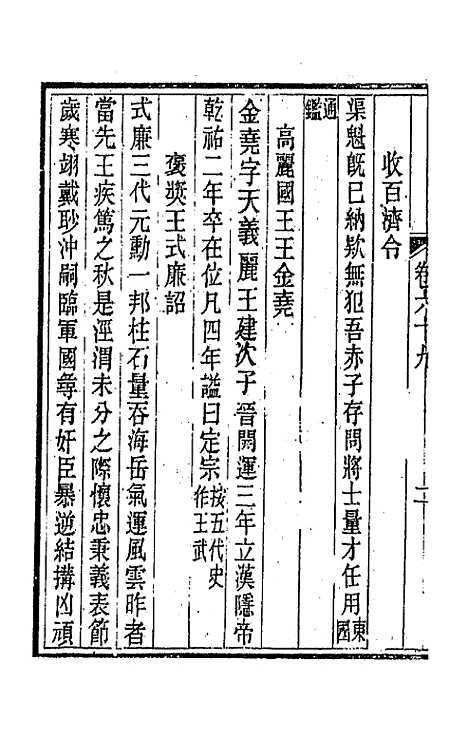 卷六十九
二
收百濟令
渠魁旣已納欵無犯吾赤子存問將士量才任用東國
通鑑
高麗國王王金堯
金堯字天義麗王建次子晉開運三年立漢隱帝
乾祐二年卒在位凡四年謚曰定宗按五代史作王武
褒奬王式廉詔
式廉三代元勳一邦柱石量吞海岳氣運風雲昨者
當先王疾篤之秋是涇渭未分之際懷忠秉義表節
歲寒翊戴眇沖嗣臨軍國尋有奸臣暴逆結搆凶頑